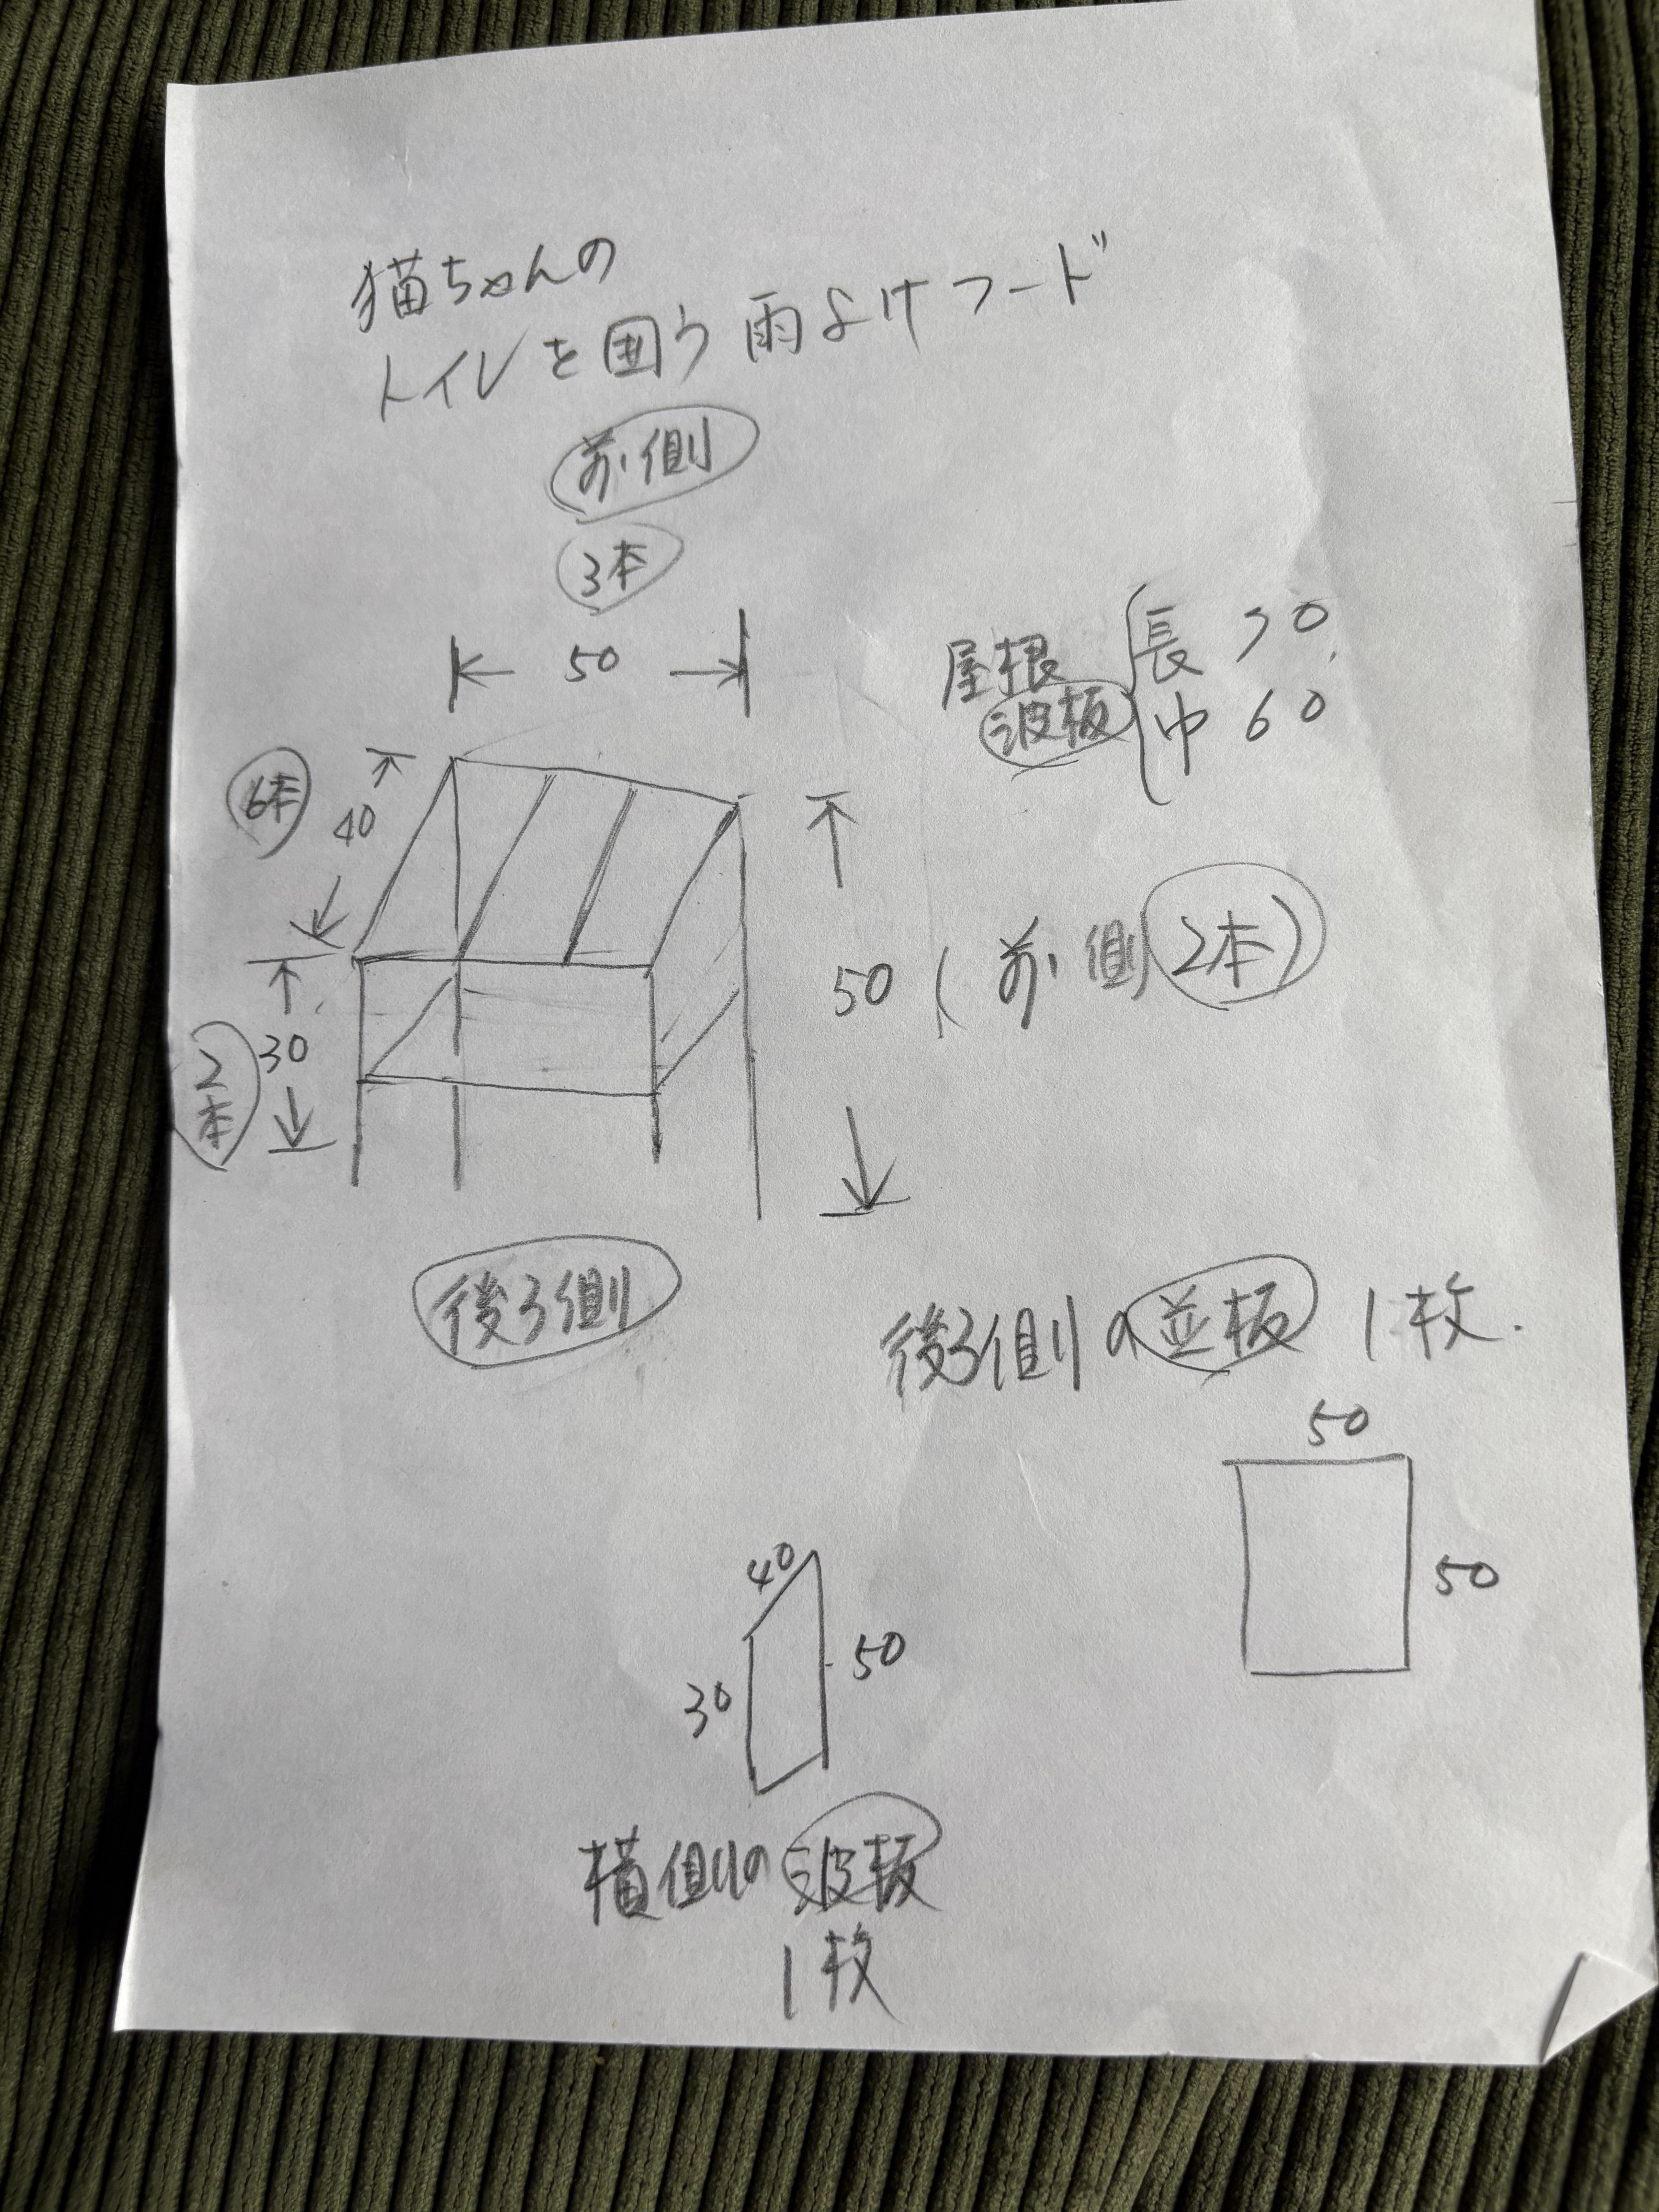 猫ちゃんの
トイレを囲う雨よけフード
前側
3本
50
屋根 長 70
波板 巾 60
6本
40
50 (前側 2本)
2本
30
後ろ側
後ろ側の並板 1枚.
50
50
40
30
50
横側の波板
1枚